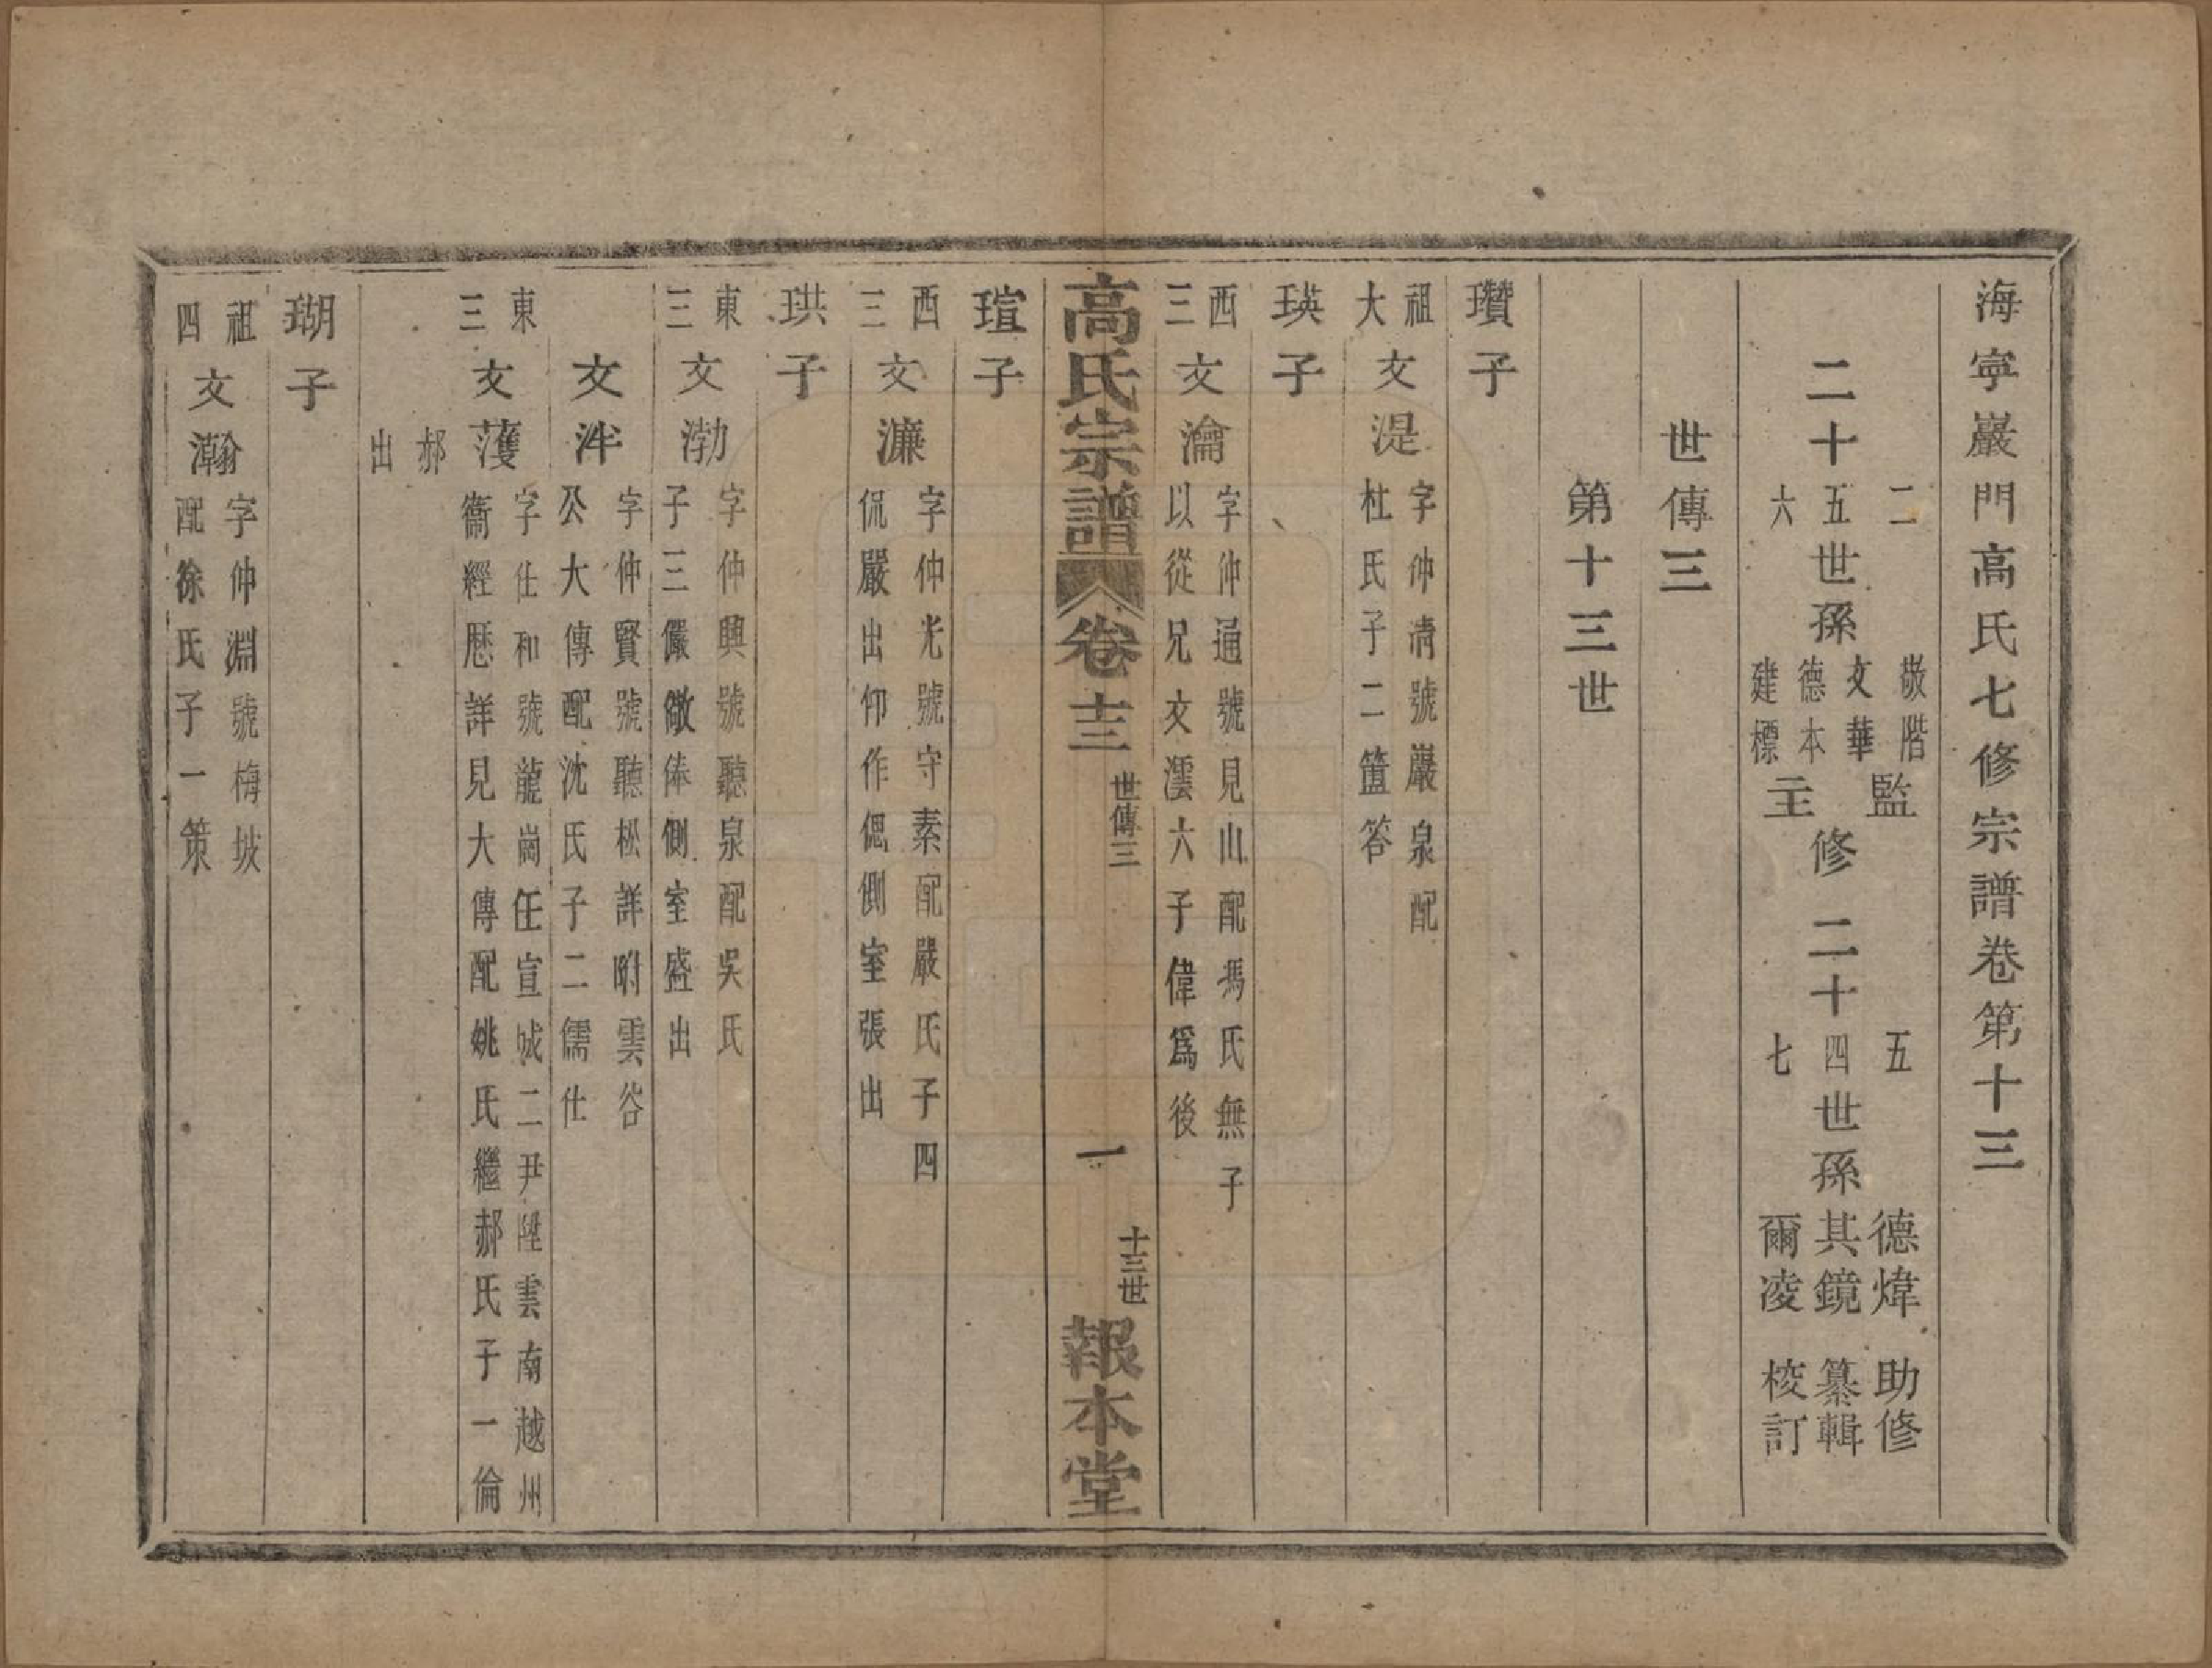 海寧巖門高氏七修宗譜卷第十三
二十二五六世孫敬階文華德本建標監主修 二十五四七世孫德煒其鏡爾凌 助修纂輯校訂
世傳三
第十三世
瓚子
祖大 文湜 字仲清號巖泉配
杜氏子二簠簵
瑛子
西三 文瀹 字仲通號見山配馮氏無子
以從兄文澐六子偉爲後
高氏宗譜 卷十三 世傳三 一 十三世 報本堂
瑄子
西三 文濂 字仲光號守素配嚴氏子四
侃嚴出仰作偲側室張出
珙子
東三 文渤 字仲興號聽泉配吳氏
子三儼儆俸側室盛出
文泮 字仲賢號聽松詳附雲谷
公大傳配沈氏子二儒仕
東三 文濩 字仕和號龍崗任宣城二尹陞雲南越州
衞經歷詳見大傳配姚氏繼郝氏子一倫
郝
出
瑚子
祖四 文瀚 字仲淵號梅坡
配徐氏子一策